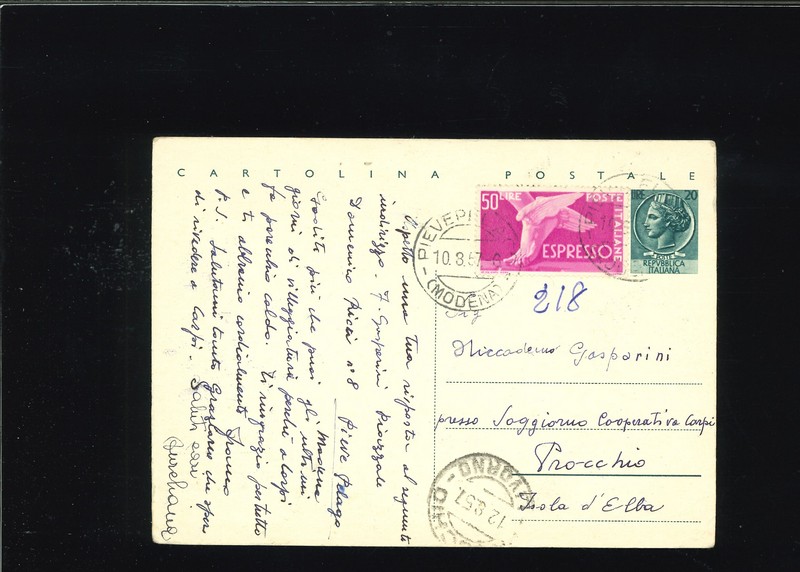 CARTOLINA POSTALE
50 LIRE
POSTE ITALIANE
ESPRESSO
LIRE 20
POSTE
REPUBBLICA
ITALIANA
PIEVEPE
10.8.57
(MODENA)
218
Niccodemo Gasparini
presso Soggiorno Cooperativa Carpi
Procchio
Isola d'Elba
LIVORNO
12.8.57
Aspetto una tua risposta al seguente
indirizzo. F. Gasparini Piazzale
Domenico Ricci n° 8 Pieve Pelago
Modena
Goditi più che puoi gli ultimi
giorni di villeggiatura perché a Carpi
fa parecchio caldo. Ti ringrazio per tutto
e ti abbraccio cordialmente Franco
P.S. Salutami tanto Graziano che spero
di rivedere a Carpi. Saluti cari
Aureliana